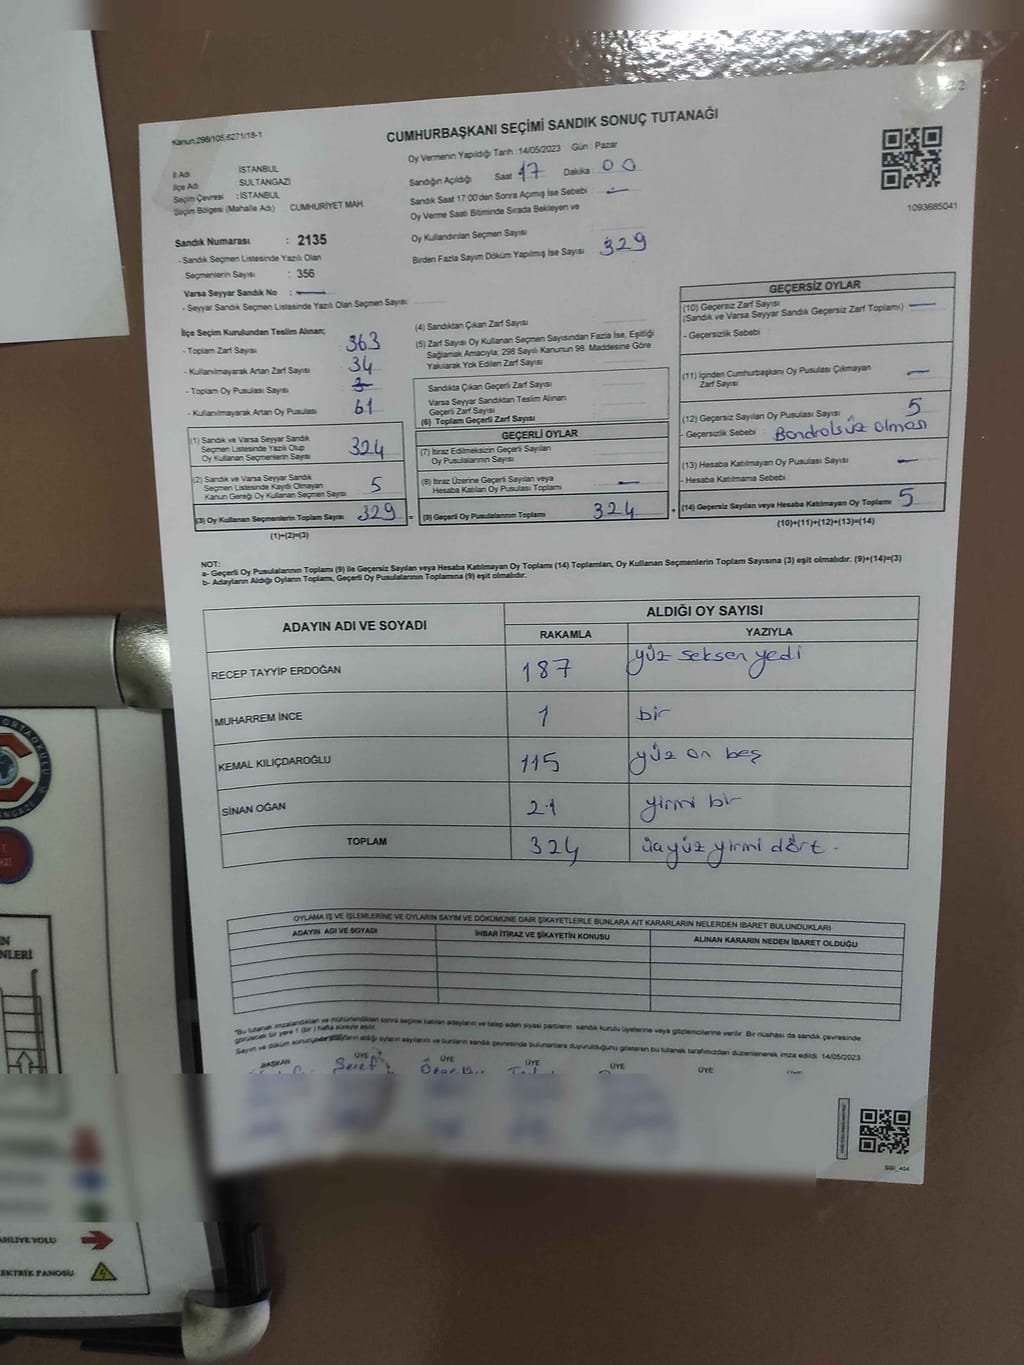 Kanun:298/105,6271/18-1
CUMHURBAŞKANI SEÇİMİ SANDIK SONUÇ TUTANAĞI
İl Adı : İSTANBUL
İlçe Adı : SULTANGAZİ
Seçim Çevresi : İSTANBUL
Seçim Bölgesi (Mahalle Adı) CUMHURİYET MAH.
Oy Vermenin Yapıldığı Tarih : 14/05/2023 Gün : Pazar
Sandığın Açıldığı Saat 17 Dakika : 00
Sandık Saat 17:00'den Sonra Açılmış İse Sebebi —
Oy Verme Saati Bitiminde Sırada Bekleyen ve
Oy Kullandırılan Seçmen Sayısı
Birden Fazla Sayım Döküm Yapılmış İse Sayısı 329
1093685041
Sandık Numarası : 2135
- Sandık Seçmen Listesinde Yazılı Olan
Seçmenlerin Sayısı : 356
Varsa Seyyar Sandık No : —
- Seyyar Sandık Seçmen Listesinde Yazılı Olan Seçmen Sayısı:
İlçe Seçim Kurulundan Teslim Alınan;
- Toplam Zarf Sayısı 363
- Kullanılmayarak Artan Zarf Sayısı 34
- Toplam Oy Pusulası Sayısı
- Kullanılmayarak Artan Oy Pusulası 61
(1) Sandık ve Varsa Seyyar Sandık
Seçmen Listesinde Yazılı Olup
Oy Kullanan Seçmenlerin Sayısı 324
(2) Sandık ve Varsa Seyyar Sandık
Seçmen Listesinde Kaydı Olmayan
Kanun Gereği Oy Kullanan Seçmen Sayısı 5
(3) Oy Kullanan Seçmenlerin Toplam Sayısı 329
(1)+(2)=(3)
(4) Sandıktan Çıkan Zarf Sayısı
(5) Zarf Sayısı Oy Kullanan Seçmen Sayısından Fazla İse, Eşitliği
Sağlamak Amacıyla; 298 Sayılı Kanunun 98. Maddesine Göre
Yakılarak Yok Edilen Zarf Sayısı
Sandıkta Çıkan Geçerli Zarf Sayısı
Varsa Seyyar Sandıktan Teslim Alınan
Geçerli Zarf Sayısı
(6) Toplam Geçerli Zarf Sayısı
GEÇERLİ OYLAR
(7) İtiraz Edilmeksizin Geçerli Sayılan
Oy Pusulalarının Sayısı
(8) İtiraz Üzerine Geçerli Sayılan veya
Hesaba Katılan Oy Pusulası Toplamı —
= (9) Geçerli Oy Pusulalarının Toplamı 324 +
GEÇERSİZ OYLAR
(10) Geçersiz Zarf Sayısı
(Sandık ve Varsa Seyyar Sandık Geçersiz Zarf Toplamı) —
- Geçersizlik Sebebi
(11) İçinden Cumhurbaşkanı Oy Pusulası Çıkmayan
Zarf Sayısı —
(12) Geçersiz Sayılan Oy Pusulası Sayısı 5
- Geçersizlik Sebebi Bandrolsüz olması
(13) Hesaba Katılmayan Oy Pusulası Sayısı —
- Hesaba Katılmama Sebebi
(14) Geçersiz Sayılan veya Hesaba Katılmayan Oy Toplamı 5
(10)+(11)+(12)+(13)=(14)
NOT:
a- Geçerli Oy Pusulalarının Toplamı (9) ile Geçersiz Sayılan veya Hesaba Katılmayan Oy Toplamı (14) Toplamları, Oy Kullanan Seçmenlerin Toplam Sayısına (3) eşit olmalıdır. (9)+(14)=(3)
b- Adayların Aldığı Oyların Toplamı, Geçerli Oy Pusulalarının Toplamına (9) eşit olmalıdır.
ADAYIN ADI VE SOYADI ALDIĞI OY SAYISI
RAKAMLA YAZIYLA
RECEP TAYYİP ERDOĞAN 187 yüz seksen yedi
MUHARREM İNCE 1 bir
KEMAL KILIÇDAROĞLU 115 yüz on beş
SİNAN OĞAN 21 yirmi bir
TOPLAM 324 üçyüz yirmi dört.
OYLAMA İŞ VE İŞLEMLERİNE VE OYLARIN SAYIM VE DÖKÜMÜNE DAİR ŞİKAYETLERLE BUNLARA AİT KARARLARIN NELERDEN İBARET BULUNDUKLARI
ADAYIN ADI VE SOYADI İHBAR İTİRAZ VE ŞİKAYETİN KONUSU ALINAN KARARIN NEDEN İBARET OLDUĞU
*Bu tutanak imzalandıktan ve mühürlendikten sonra seçime katılan adayların ve talep eden siyasi partilerin sandık kurulu üyelerine veya gözlemcilerine verilir. Bir nüshası da sandık çevresinde
görülecek bir yere 1 (bir) hafta süreyle asılır.
Sayım ve döküm sonucunda adayların aldığı oyların sayılarını ve bunların sandık çevresinde bulunanlara duyurulduğunu gösteren bu tutanak tarafımızdan düzenlenerek imza edildi. 14/05/2023
BAŞKAN ÜYE ÜYE ÜYE ÜYE ÜYE
Seref
ORTAOKULU
NLERİ
AHLİYE YOLU
EKTRİK PANOSU